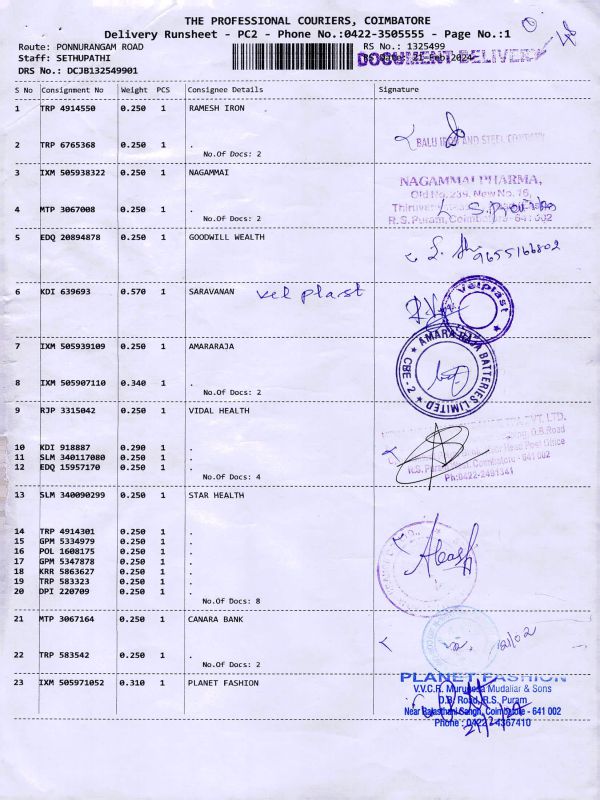 THE PROFESSIONAL COURIERS, COIMBATORE
Delivery Runsheet - PC2 - Phone No.:0422-3505555 - Page No.:1
Route: PONNURANGAM ROAD RS No.: 1325499
Staff: SETHUPATHI RS Date: 21-Feb-2024
DOCUMENT DELIVERY
DRS No.: DCJB132549901
S No Consignment No Weight PCS Consignee Details Signature
1 TRP 4914550 0.250 1 RAMESH IRON
BALU IRON AND STEEL COMPANY
2 TRP 6765368 0.250 1 .
No.Of Docs: 2
3 IXM 505938322 0.250 1 NAGAMMAI
NAGAMMAI PHARMA,
Old No.239, New No.76,
4 MTP 3067008 0.250 1 .
R.S.Puram, Coimbatore - 641 002
No.Of Docs: 2
5 EDQ 20894878 0.250 1 GOODWILL WEALTH
9655166802
6 KDI 639693 0.570 1 SARAVANAN vel plast
Velplast
7 IXM 505939109 0.250 1 AMARARAJA
AMARA RAJA BATTERIES LIMITED
CBE - 2
8 IXM 505907110 0.340 1 .
No.Of Docs: 2
9 RJP 3315042 0.250 1 VIDAL HEALTH
PVT LTD.
D.B.Road
Head Post Office
10 KDI 918887 0.290 1 .
11 SLM 340117080 0.250 1 .
12 EDQ 15957170 0.250 1 .
R.S. Puram, Coimbatore - 641 002
Ph:0422-2491341
No.Of Docs: 4
13 SLM 340090299 0.250 1 STAR HEALTH
14 TRP 4914301 0.250 1 .
15 GPM 5334979 0.250 1 .
16 POL 1608175 0.250 1 .
17 GPM 5347878 0.250 1 .
18 KRR 5863627 0.250 1 .
19 TRP 583323 0.250 1 .
20 DPI 220709 0.250 1 .
No.Of Docs: 8
21 MTP 3067164 0.250 1 CANARA BANK
21/02
22 TRP 583542 0.250 1 .
No.Of Docs: 2
23 IXM 505971052 0.310 1 PLANET FASHION
PLANET FASHION
V.V.C.R. Murugesa Mudaliar & Sons
D.B. Road, R.S. Puram
Near Rajasthani Sangh, Coimbatore - 641 002
Phone : 0422-4367410